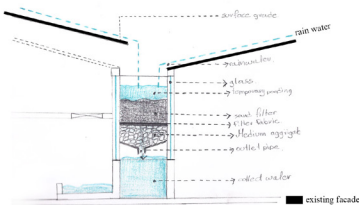 surface grade
rain water
glass
temporary ponding
sand filter
filter fabric
Medium aggrigat
outlet pipe
collect water
existing facade